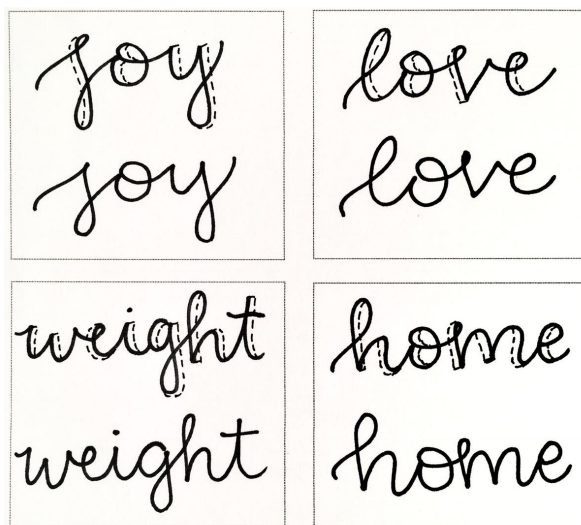 joy
joy
love
love
weight
weight
home
home